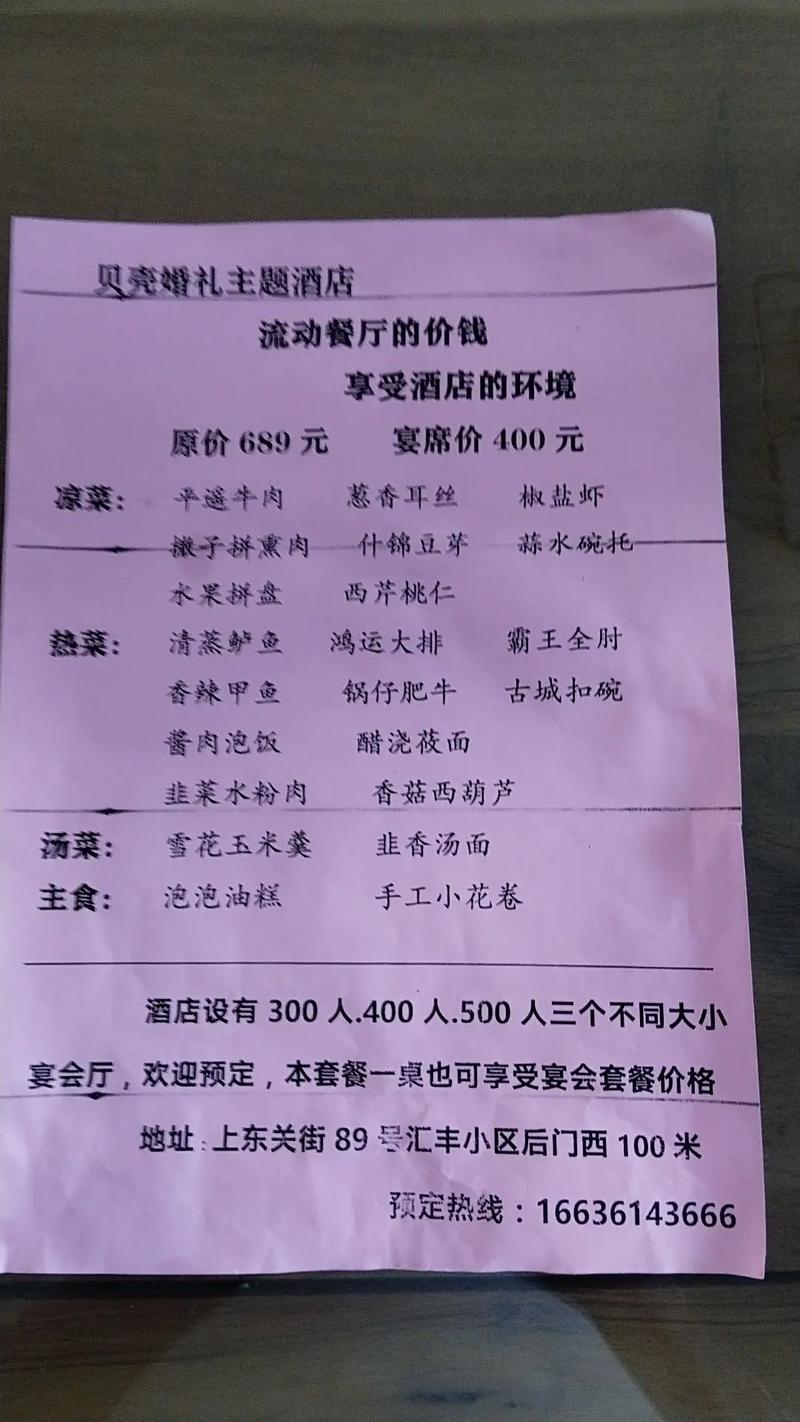 贝壳婚礼主题酒店
流动餐厅的价钱
享受酒店的环境
原价 689 元 宴席价 400 元
凉菜: 平遥牛肉 葱香耳丝 椒盐虾
撖子拼熏肉 什锦豆芽 蒜水碗托
水果拼盘 西芹桃仁
热菜: 清蒸鲈鱼 鸿运大排 霸王全肘
香辣甲鱼 锅仔肥牛 古城扣碗
酱肉泡饭 醋浇莜面
韭菜水粉肉 香菇西葫芦
汤菜: 雪花玉米羹 韭香汤面
主食: 泡泡油糕 手工小花卷
酒店设有 300 人.400 人.500 人三个不同大小
宴会厅,欢迎预定,本套餐一桌也可享受宴会套餐价格
地址:上东关街 89 号汇丰小区后门西 100 米
预定热线:16636143666